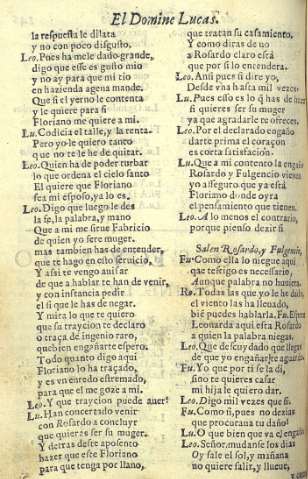 El Domine Lucas.
la respuesta le dilata
y no con poco disgusto.
Leo. Pues ha mele dado grande,
digo que esse es gusto mio
y no ay para que mi tio
en hazienda agena mande.
Que si el yerno le contenta
y le quiere para si
Floriano me quiere a mi.
Lu. Codicia el talle, y la renta.
Pero yo le quiero tanto
que no te le he de quitar.
Leo. Quien ha de poder turbar
lo que ordena el cielo santo
El quiere que Floriano
sea mi esposo, ya lo es.
Leo. Digo que luego le des
la fe, la palabra, y mano
Que a mi me sirue Fabricio
de quien yo sere muger.
mas tambien has de entender,
que te hago en esto seruicio,
Y assi te vengo auisar
de que a hablar te han de venir,
y con instancia pedir
el si que le has de negar.
Y mira lo que te quiero
que su traycion te declaro
o traça de ingenio raro,
quebien engañarte espero.
Todo quanto digo aqui
Floriano lo ha traçado,
y es vn enredo estremado,
para que el me goze a mi.
Leo. Y que traycion puede auer?
Lu. Han concertado venir
con Rosardo a concluyr
que quieras ser su muger.
Y detras deste aposento
hazer que este Floriano
para que tenga por llano,
que tratan su casamiento.
Y como diras de no
a Rosardo claro està
que por si lo entendera.
Leo. Anti pues si dire yo,
Desde vna hasta mil vezes
Lu. Pues esso es lo q̃ has de hazer
si quieres ser su muger
y ya que agradarle te ofreces,
Leo. Por el declarado engaño
darte prima el coraçon
es corta satisfacion.
Lu. Que a mi contento la engaño
Rosardo y Fulgencio vienen
yo asseguro que ya està
Floriano donde oyra
el pensamiento que tienen.
Leo. A lo menos el contrario,
porque pienso dezir si
Salen Rosardo, y Fulgencio,
Fu. Como ella lo niegue aqui
que testigo es necessario,
Aunque palabra no huuiera.
Ro. Todas las que yo le he dado
el viento las ha lleuado,
biẽ puedes hablarla. Fu. Espera
Leonarda aqui esta Rosardo
a quien la palabra niegas.
Leo. Que descuydado que llega
de que yo engañarle aguardo
Fu. Yo que por ti se la di,
sino te quieres casar
mi hija le quiero dar.
Leo. Digo mil vezes que si.
Fu. Como si, pues no dezias
que procuraua tu daño?
Lu. O que bien que va el engaño
Leo. Señor, mudanse los dias
Oy sale el sol, y mañana
no quiere salir, y llueue,